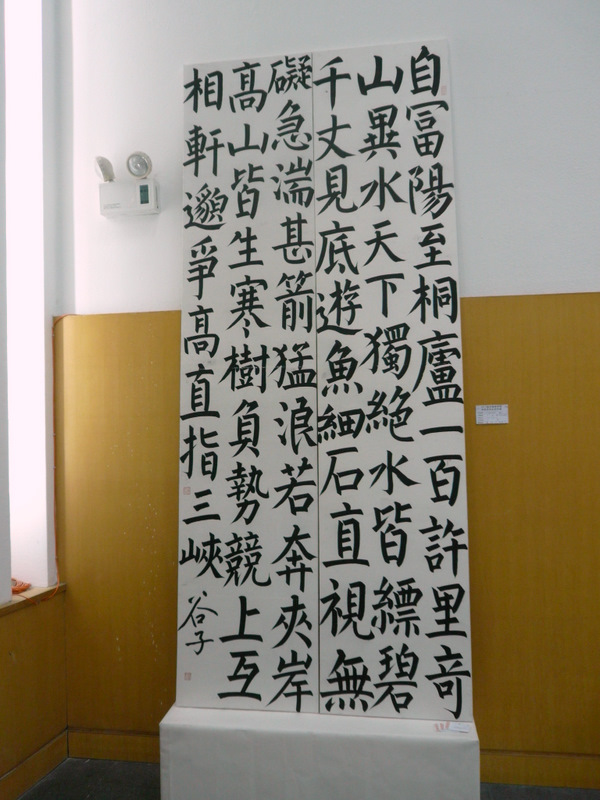 自冨陽至桐廬一百許里竒
山異水天下獨絶水皆縹碧
千丈見底遊魚細石直視無
礙急湍甚箭猛浪若奔夾岸
髙山皆生寒樹負勢競上互
相軒邈爭高直指三峽
谷子